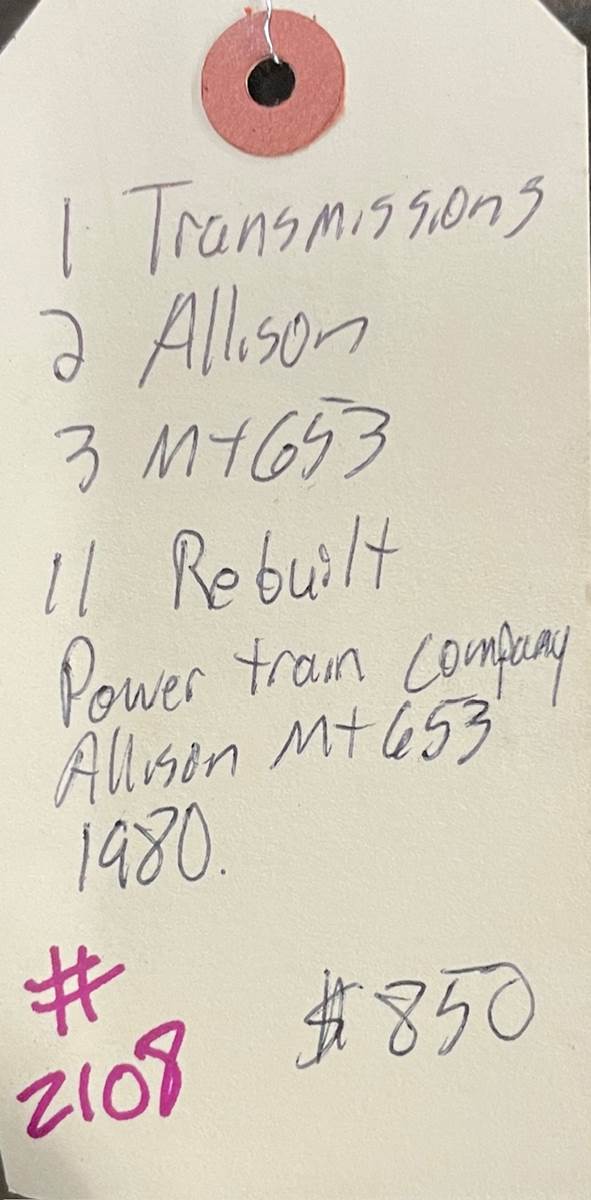 1 Transmissions
2 Allison
3 Mt653
11 Rebuilt
Power train Company
Allison Mt 653
1980.
#
2108
$850